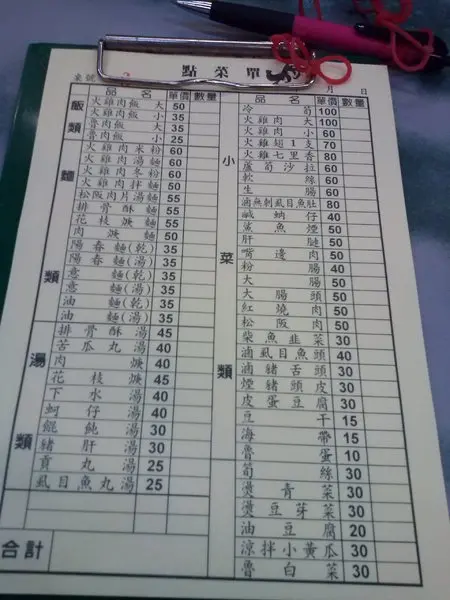 點菜單
桌號 月 日
品名 單價 數量
飯類
火雞肉飯 大 50
火雞肉飯 小 35
魯肉飯 大 35
魯肉飯 小 25
麵類
火雞肉米粉 60
火雞肉湯麵 60
火雞肉冬粉 60
火雞肉拌麵 50
松阪肉片湯麵 55
排骨酥麵 55
花枝焿麵 55
肉焿麵 50
陽春麵(乾) 35
陽春麵(湯) 35
意麵(乾) 35
意麵(湯) 35
油麵(乾) 35
油麵(湯) 35
湯類
排骨酥湯 45
苦瓜丸湯 40
肉焿 40
花枝焿 45
下水湯 40
蚵仔湯 40
餛飩湯 30
豬肝湯 30
貢丸湯 25
虱目魚丸湯 25
合計
品名 單價 數量
小菜類
冷筍 100
火雞肉 大 100
火雞肉 小 60
火雞翅1支 70
火雞七里香 80
蘆筍沙拉 60
軟絲 60
生腸 60
滷無刺虱目魚肚 80
鹹蚋仔 40
鯊魚煙 50
肝腱 50
嘴邊肉 50
粉腸 40
大腸 50
大腸頭 50
紅燒肉 50
松阪肉 50
柴魚韭菜 30
滷虱目魚頭 40
滷豬舌頭 30
煙豬頭皮 30
皮蛋豆腐 30
豆干 15
海帶 15
魯蛋 10
筍絲 30
燙青菜 30
燙豆芽菜 30
油豆腐 20
涼拌小黃瓜 30
魯白菜 30